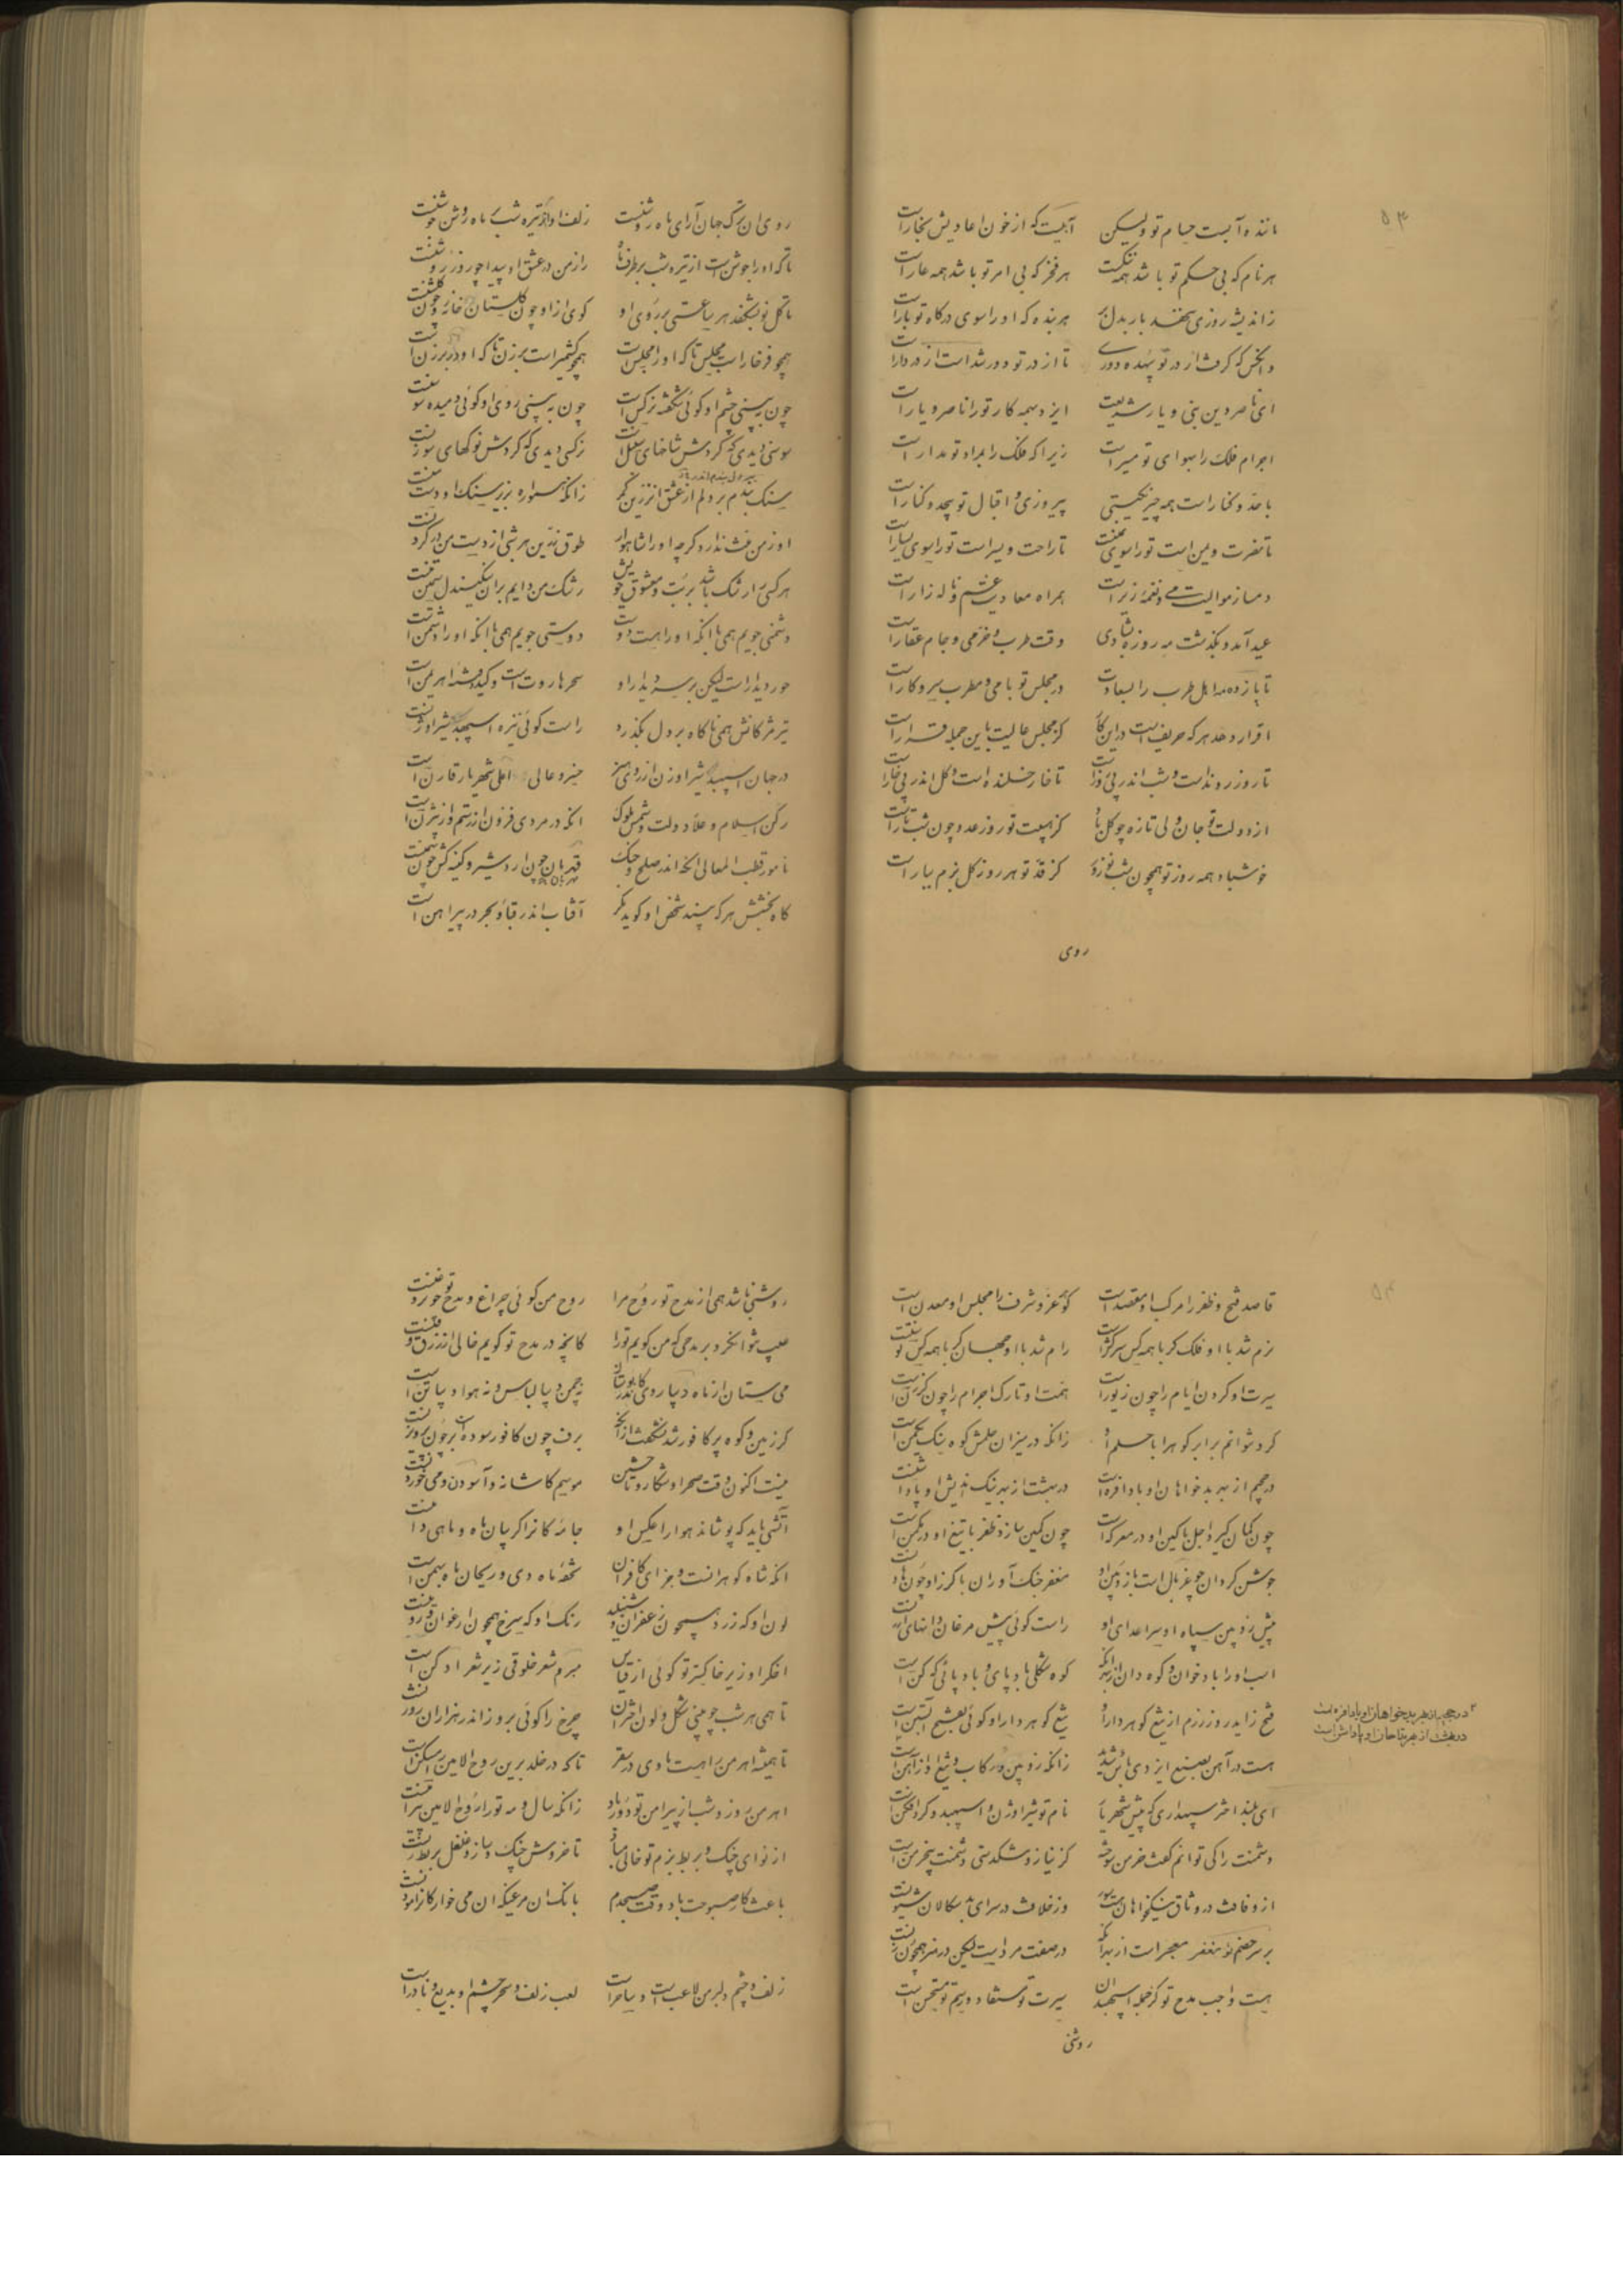 ۵۳
ماننده آبست حسام تو ولیکن آبیست که از خون اعادیش بخار است
هر نام که بی حکم تو باشد همه ننگست هر فخر که بی امر تو باشد همه عار است
ز اندیشه روزی بدل بر هر بنده که او را سوی درگاه تو بار است
وانکس که گرفت از در تو دوری تا از در تو دور شد است از در دار است
ای ناصر دین نبی و یار شریعت ایزد بهمه کار تو را ناصر و یار است
اجرام فلک را بهوای تو مسیر است زیرا که فلک را بمراد تو مدار است
پیروزی و اقبال تو بیحد و کنار است
تا نصرت و یمن است تو را سوی یمینت تا راحت و یسر است تو را سوی یسار است
دمساز موالیت می و نغمه زیر است همراه معادیت غم و ناله زار است
عید آمد و بگذشت مه روزه بشادی وقت طرب و خرمی و جام عقار است
در مجلس تو با می و مطرب سر و کار است
اقرار دهد هر که حریف است در این کار کز مجلس عالیت باین جمله قرار است
تا روز رونده است و شب اندر پی روز است تا خار خلنده است و گل اندر پی خار است
از دولت تو جان ولی تازه چو گل باد کز هیبت تو روز عدو چون شب تار است
خوش باد همه روز تو همچون شب نوروز کز قد تو هر روز گل بزم ببار است
روی
روی آن ترک جهان آرای ماه روشنست زلف او از تیره شب بر ماه روشن جوشنست
تا که او را جوشن است از تیره شب بر طرف ماه راز من در عشق او پیدا چو روز روشنست
تا گل نو بشکفد هر ساعتی بر روی او کوی از او چون گلستان خانه چون گلشنست
همچو فرخار است مجلس تا که او را مجلس است همچو کشمیر است برزن تا که او در برزن است
چون ببینی چشم او گوئی شکفته نرگس است چون ببینی روی او گوئی دمیده سوسنست
سوسنی دیدی که گردش شاخهای سنبل است نرگسی دیدی که گردش نوکهای سوزنست
سنگ بندم بر دلم از عشق آن زرین کمر زانکه همواره بزر سنگ او
هر کسی را رشک باشد بر بت و معشوق خویش رشک من دایم بر آن سنگین دل سیمین تنست
دشمنی جویم همی با آنکه او را هست دوست دوستی جویم همی با آنکه او را دشمن است
حور دیدار است لیکن بر سر دیدار او سحر هاروت است و کید و فتنه اهریمن است
تیر مژگانش همی ناگاه بر دل بگذرد راست گوئی نیزه اسپهبد شیر اوژنست
در جهان اسپهبد شیر اوزن از روی هنر خسرو عالی اعلی شهریار قارن است
رکن اسلام و علاء دولت و شمس ملوک آنکه در مردی فزون از رستم و از بیژن است
نامور قطب المعالی آنکه اندر صلح و جنگ قهرمان چون اردشیر و کینه کش چون بهمنست
گاه بخشش هر که بیند شخص او گوید مگر آفتاب اندر قبا و بحر در پیراهن است
۵۴
قاصد فتح و ظفر را مرکب او مقصد است گوهر عز و شرف را مجلس او معدن است
نرم شد با او فلک گر با همه کس سرکش است رام شد با او جهان گر با همه کس توسنست
سیرت او گردن ایام را چون زیور است همت او تارک اجرام را چون گرزن است
کرد نتوانم برابر کوه را با حلم او زانکه در میزان حلمش کوه سنگ یکمن است
در جحیم از بهر بدخواهان او بادافره است در بهشت از بهر نیک اندیش او پاداشنست
چون کمان گیرد اجل با کین او در معرکه است چون کمین سازد ظفر با تیغ او در مکمن است
جوشن گردان چو غربال است با زوبین او مغفر جنگ آوران با گرز او چون هاونست
پیش زوبین سپاه او سر اعدای او راست گوئی پیش مرغان دانهای ارزنست
کوه شکلی باد پای و باد پائی که کن است
فتح زاید روز رزم از تیغ گوهردار او تیغ گوهر دار او گوئی بفتح آبستن است
هست در آهن بصنع ایزدی باس شدید زانکه زوبین و رکاب و تیغ او از آهن است
ای بلند اختر سپهداری که پیش شهریار نام تو شیر اوژن و اسپهبد و گرد افکن است
دشمنت را کی توانم گفت خرمن سوخته کز نیاز و تنگدستی دشمنت بیخرمن است
از وفاقت در وثاق نیکخواهان سور وز خلافت در سرای بدسگالان شیونست
بر سر خصم تو مغفر معجر است از بهر آنکه در صفت مرد است لیکن در هنر همچون زنست
هست واجب مدح تو کز جمله اسپهبدان سیرت تو مستفاد و رسم تو مستحسن است
۳ در جحیم از بهر بدخواهان او بادافره است
در بهشت از بهر مداحان او پاداش است
روشنی
روشنی باشد همی از مدح تو روح مرا روح من گوئی چراغ و مدح تو چون روغنست
عیب نتوان کرد بر مدحی که من گویم تو را کانچه در مدح تو گویم خالی از زرق و فنست
گر زمین و کوه پر کافور شد نشگفت از آنک برف چون کافور سوده ابر چون پرویزنست
نیست اکنون وقت صحرا و شکار و تاختن موسم کاشانه و آسودن و می خوردنست
آتشی باید که پوشاند هوا را عکس او جامه کانرا گریبان ماه و ماهی دامنست
آنکه شاه گوهرانست و جزای کافران تحفه ماه دی و ریحان ماه بهمن است
لون او که زرد همچون زعفران و شنبلید رنگ او که سرخ همچون ارغوان و روینست
اخگر او زیر خاکستر تو گوئی از قیاس
تا همی هر شب چو بینی شکل و لون اختران چرخ را گوئی بروز اندر هزاران روزنست
تا همیشه اهرمن را هست ماوی در سقر تا که در خلد برین روح الامین را مسکن است
اهرمن روز و شب از پیرامن تو دور باد زانکه سال و مه تو را روح الامین پیرامنست
از نوای چنگ و بربط بزم تو خالی مباد تا خروش چنگ و ساز و غلغل بربط زنست
باعث کار صبوحت باد وقت صبحدم بانگ آن مرغیکه آن می خوارگانرا موذنست
زلف و چشم دلبر من لاعب است و ساحر است لعب زلف و سحر چشم او بدیع و نادر است